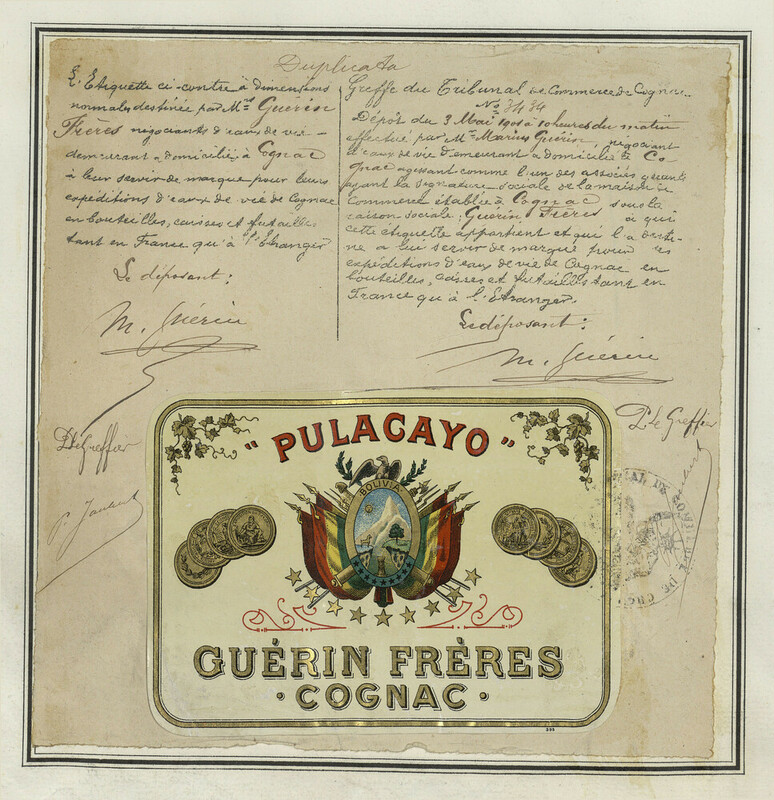 Duplicata
L'Etiquette ci-contre à dimensions
normales destinée par Mrs Guérin
Frères négociants d'eaux de vie
demeurant à domicilié à Cognac
à leur servir de marque pour leurs
expéditions d'eaux de vie de Cognac
en bouteilles, caisses et futailles
tant en France qu'à l'Etranger
Le déposant :
M. Guérin
P. le Greffier
Greffe du Tribunal de Commerce de Cognac
No 3434
Dépôt du 3 Mai 1901 à 10 heures du matin
effectué par Mr Marius Guérin, négociant
d'eaux de vie demeurant à domicilié à Co
gnac agissant comme l'un des associés gérants
ayant la signature sociale de la maison de
Commerce établie à Cognac sous la
raison sociale : Guérin Frères à qui
cette étiquette appartient et qui l'a desti-
ne à lui servir de marque pour les
expéditions d'eaux de vie de Cognac en
bouteilles, caisses et futailles tant en
France qu'à l'Etranger.
Le déposant :
M. Guérin
P. le Greffier
"PULACAYO"
BOLIVIA
GUÉRIN FRÈRES
·COGNAC·